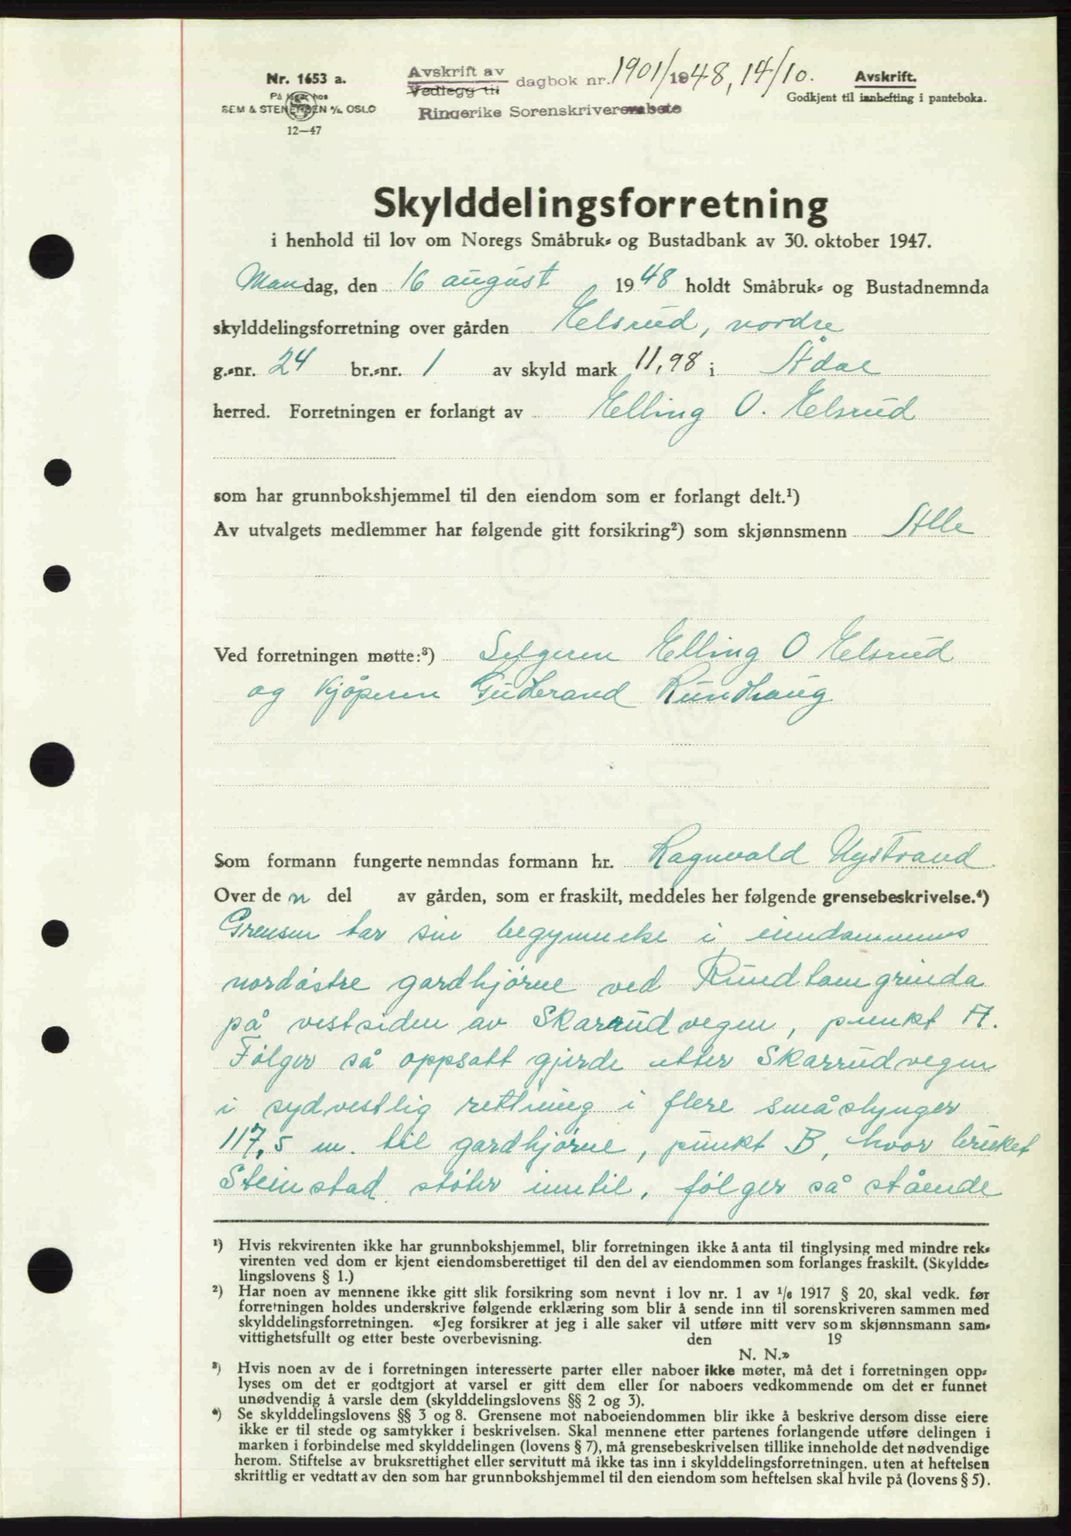 Nr. 1653 a.
På lager hos
SEM & STENERSEN A/S, OSLO
12—47
Avskrift av
Vedlegg til
dagbok nr. 1901/1948, 14/10.
Ringerike Sorenskriverembete
Avskrift.
Godkjent til innhefting i panteboka.
Skylddelingsforretning
i henhold til lov om Noregs Småbruk- og Bustadbank av 30. oktober 1947.
Mandag, den 16 august 1948 holdt Småbruk- og Bustadnemnda
skylddelingsforretning over gården Elsrud, nordre
g.-nr. 24 br.-nr. 1 av skyld mark 11,98 i Ådal
herred. Forretningen er forlangt av Elling O. Elsrud
som har grunnbokshjemmel til den eiendom som er forlangt delt.¹)
Av utvalgets medlemmer har følgende gitt forsikring²) som skjønnsmenn Alle
Ved forretningen møtte:³) Selgeren Elling O Elsrud
og kjøperen Gudbrand Rundhaug
Som formann fungerte nemndas formann hr. Ragnvald Nystrand.
Over den del av gården, som er fraskilt, meddeles her følgende grensebeskrivelse.⁴)
Grensen tar sin begynnelse i eiendommens
nordøstre gardhjørne ved Rundhamgrinda
på vestsiden av Skarrudvegen, punkt A.
Følger så oppsatt gjerde etter Skarrudvegen
i sydvestlig rettning i flere småslynger
117,5 m. til gardhjørne, punkt B, hvor bruket
Steinstad støter inntil, følger så stående
¹) Hvis rekvirenten ikke har grunnbokshjemmel, blir forretningen ikke å anta til tinglysing med mindre rek-
virenten ved dom er kjent eiendomsberettiget til den del av eiendommen som forlanges fraskilt. (Skyldde-
lingslovens § 1.)
²) Har noen av mennene ikke gitt slik forsikring som nevnt i lov nr. 1 av 1/6 1917 § 20, skal vedk. før
forretningen holdes underskrive følgende erklæring som blir å sende inn til sorenskriveren sammen med
skylddelingsforretningen. «Jeg forsikrer at jeg i alle saker vil utføre mitt verv som skjønnsmann sam-
vittighetsfullt og etter beste overbevisning. den 19
N. N.»
³) Hvis noen av de i forretningen interesserte parter eller naboer ikke møter, må det i forretningen opp-
lyses om det er godtgjort at varsel er gitt dem eller for naboers vedkommende om det er funnet
unødvendig å varsle dem (skylddelingslovens §§ 2 og 3).
⁴) Se skylddelingslovens §§ 3 og 8. Grensene mot naboeiendommen blir ikke å beskrive dersom disse eiere
ikke er til stede og samtykker i beskrivelsen. Skal mennene etter partenes forlangende utføre delingen i
marken i forbindelse med skylddelingen (lovens § 7), må grensebeskrivelsen tillike inneholde det nødvendige
herom. Stiftelse av bruksrettighet eller servitutt må ikke tas inn i skylddelingsforretningen, uten at heftelsen
skriftlig er vedtatt av den som har grunnbokshjemmel til den eiendom som heftelsen skal hvile på (lovens § 5).